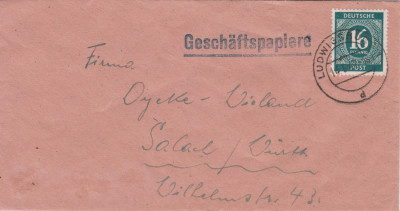 Geschäftspapiere
DEUTSCHE
16
PFENNIG
POST
LUDWIGS
d
Firma
Wieland
Salach / Württ
Wilhelmstr. 43.